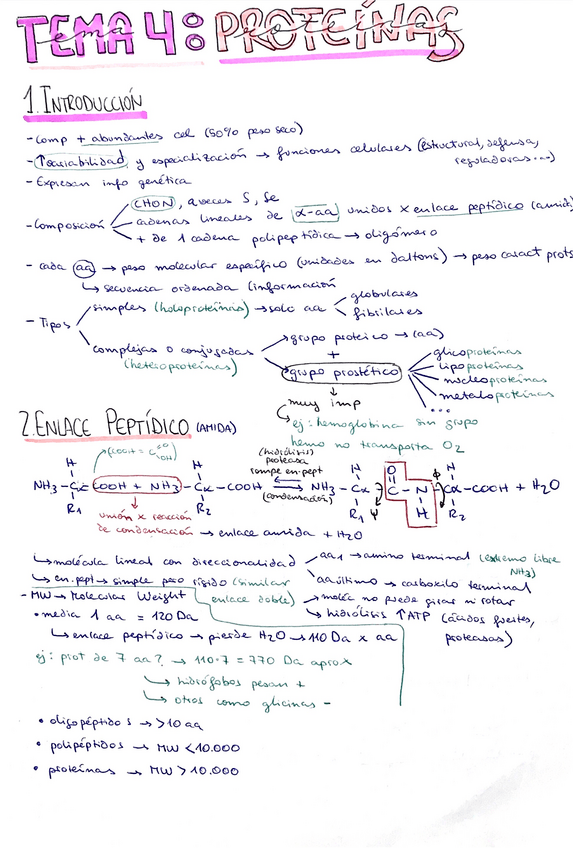 TEMA 4: PROTEÍNAS
1. INTRODUCCIÓN
- Comp + abundantes cel (50% peso seco)
- ↑variabilidad y especialización → funciones celulares (estructural, defensa, reguladoras...)
- Expresan info genética
- Composición
CHON, a veces S, Se
cadenas lineales de α-aa unidos x enlace peptídico (amida)
+ de 1 cadena polipeptídica → oligómero
- cada aa → peso molecular específico (unidades en daltons) → peso caract prots
↳ secuencia ordenada (información
- Tipos
simples (holoproteínas) → solo aa
globulares
fibrilares
complejas o conjugadas (heteroproteínas)
grupo proteico → (aa)
+
grupo prostético
glicoproteínas
lipoproteínas
nucleoproteínas
metaloproteínas
...
↓
muy imp
↳ ej: hemoglobina sin grupo
hemo no transporta O2
2. ENLACE PEPTÍDICO (AMIDA)
(hidrólisis)
proteasa
rompe en. pept
(condensación)
H H H O Φ H
NH3 - Cα - COOH + NH3 - Cα - COOH ⇄ NH3 - Cα - C - N - Cα - COOH + H2O
R1 R2 R1 Ψ H R2
unión x reacción
de condensación → enlace amida + H2O
↳ molécula lineal con direccionalidad
aa1 → amino terminal (extremo libre NH3)
aa último → carboxilo terminal
↳ en. pept → simple pero rígido (similar enlace doble)
→ moléc no puede girar ni rotar
↳ hidrólisis ↑ATP (ácidos fuertes, proteasas)
- MW → Molecular Weight
• media 1 aa = 120 Da
↳ enlace peptídico → pierde H2O → 110 Da x aa
ej: prot de 7 aa? → 110·7 = 770 Da aprox
↳ hidrófobos pesan +
↳ otros como glicinas -
• oligopéptidos → >10 aa
• polipéptidos → MW <10.000
• proteínas → MW >10.000